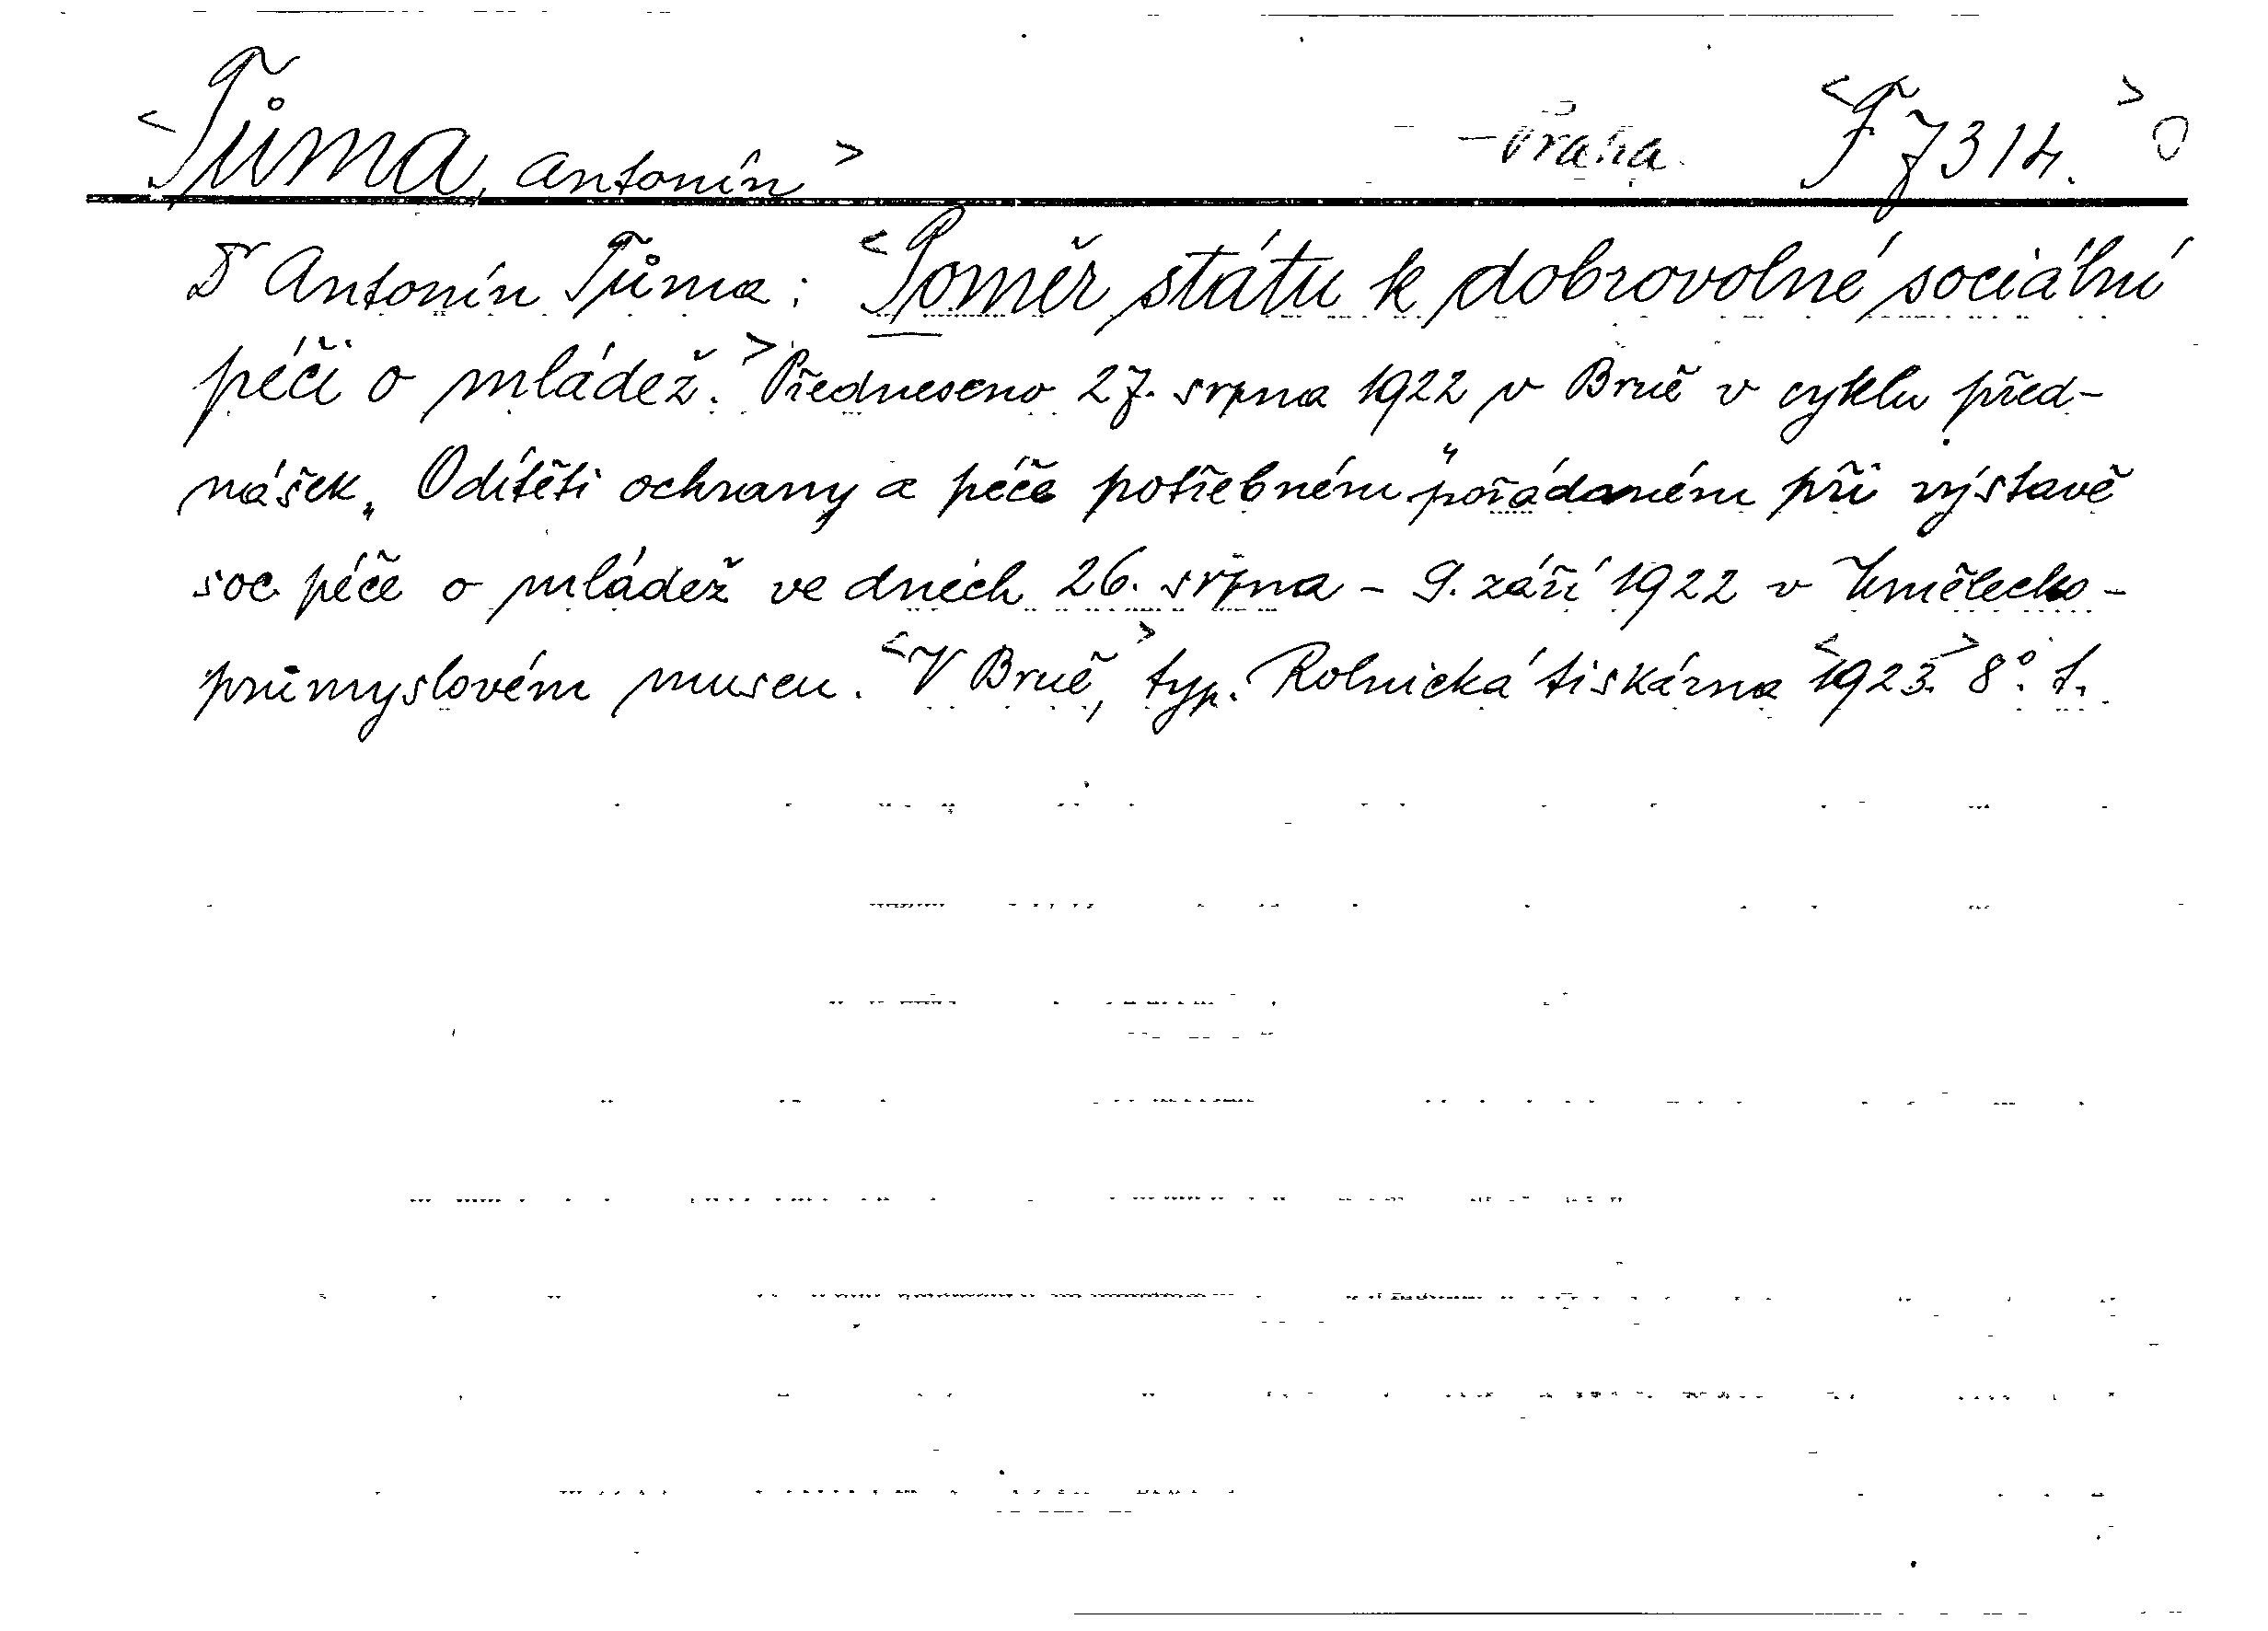 <Tůma, Antonín> – Praha. <F 7314.> 0
Dr Antonín Tůma: <Poměr státu k dobrovolné sociální
péči o mládež.> Předneseno 27. srpna 1922 v Brně v cyklu před-
nášek „O dítěti ochrany a péče potřebném“ pořádaném při výstavě
soc. péče o mládež ve dnech 26. srpna – 9. září 1922 v Umělecko-
průmyslovém museu. <V Brně,> typ. Rolnická tiskárna <1923.> 8°. t.